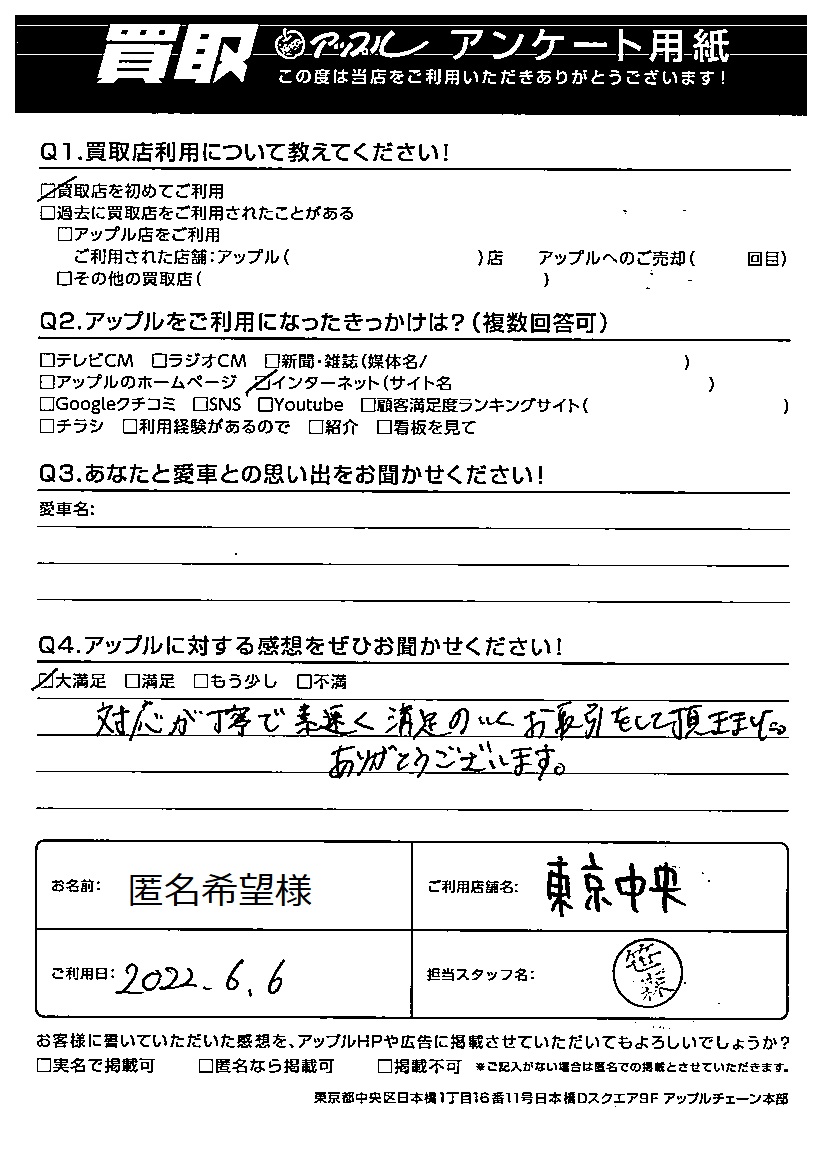 買取 アップル アンケート用紙
この度は当店をご利用いただきありがとうございます!
Q1.買取店利用について教えてください!
☑買取店を初めてご利用
□過去に買取店をご利用されたことがある
□アップル店をご利用
ご利用された店舗:アップル( )店 アップルへのご売却( 回目)
□その他の買取店( )
Q2.アップルをご利用になったきっかけは?(複数回答可)
□テレビCM □ラジオCM □新聞・雑誌(媒体名/ )
□アップルのホームページ ☑インターネット(サイト名 )
□Googleクチコミ □SNS □Youtube □顧客満足度ランキングサイト( )
□チラシ □利用経験があるので □紹介 □看板を見て
Q3.あなたと愛車との思い出をお聞かせください!
愛車名:
Q4.アップルに対する感想をぜひお聞かせください!
☑大満足 □満足 □もう少し □不満
対応が丁寧で素速く満足のいくお取引をして頂きました。
ありがとうございます。
お名前: 匿名希望様 ご利用店舗名: 東京中央
ご利用日: 2022.6.6 担当スタッフ名: 笹森
お客様に書いていただいた感想を、アップルHPや広告に掲載させていただいてもよろしいでしょうか?
□実名で掲載可 □匿名なら掲載可 □掲載不可 ※ご記入がない場合は匿名での掲載とさせていただきます。
東京都中央区日本橋1丁目16番11号日本橋Dスクエア9F アップルチェーン本部